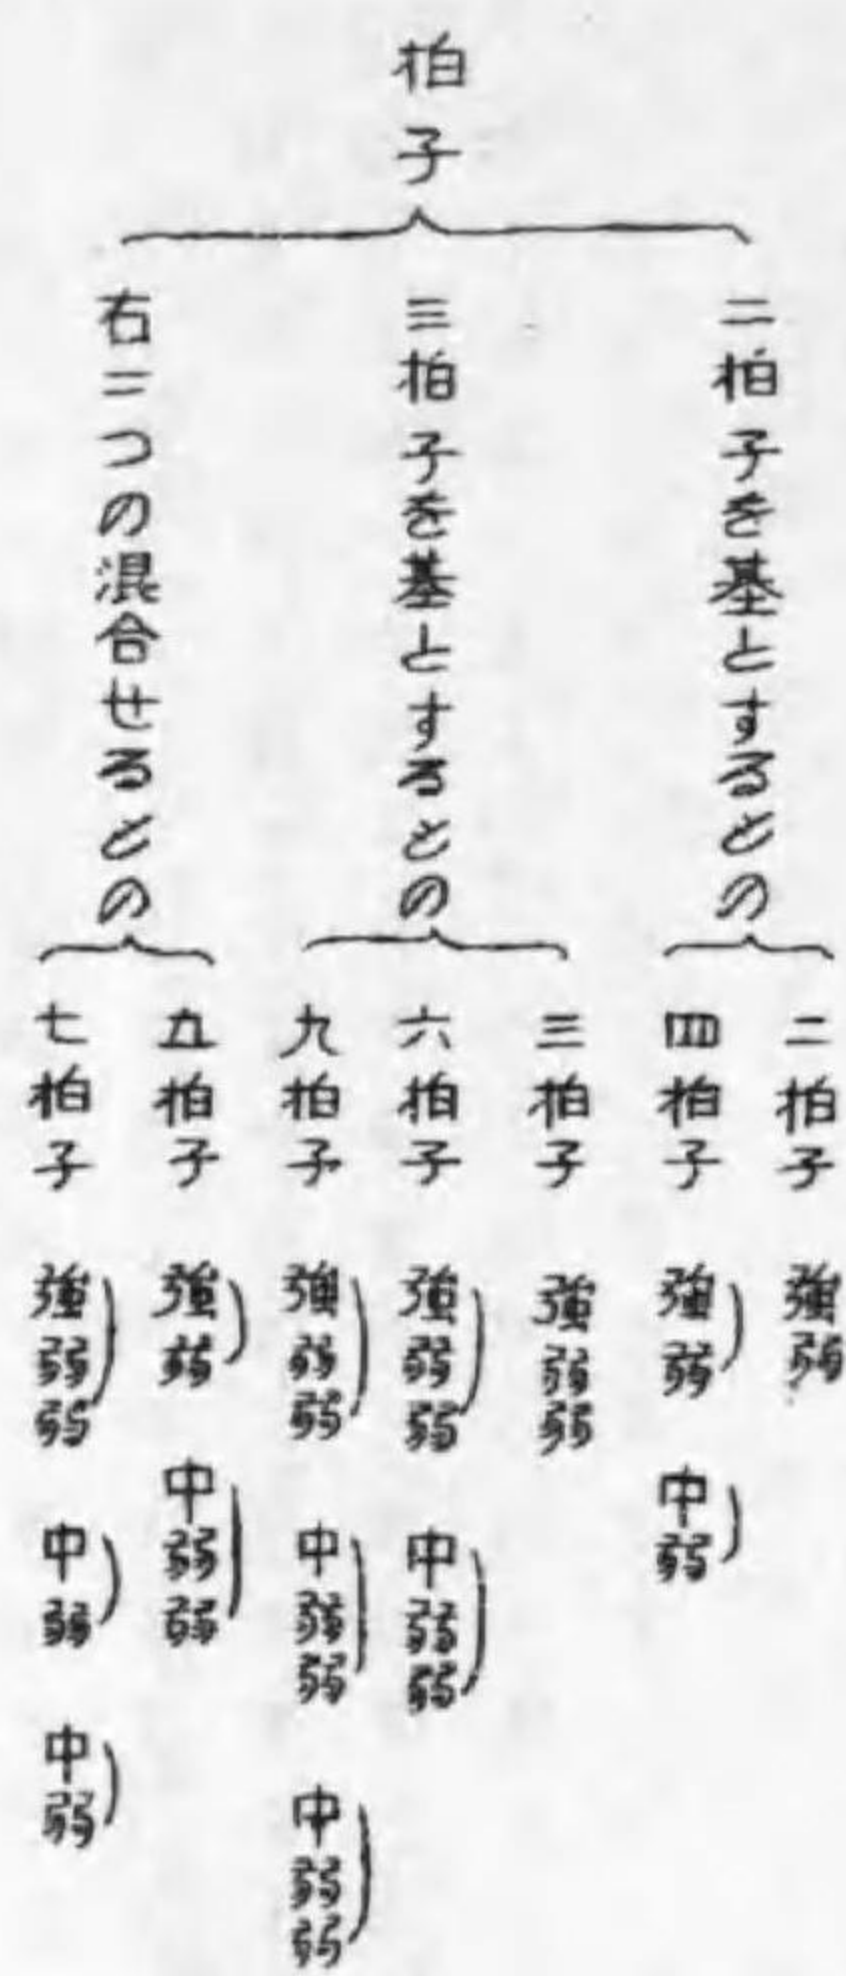 拍子
二拍子を基とするもの
二拍子 強弱
四拍子 強弱 中弱
三拍子を基とするもの
三拍子 強弱弱
六拍子 強弱弱 中弱弱
九拍子 強弱弱 中弱弱 中弱弱
右二つの混合せるもの
五拍子 強弱 中弱弱
七拍子 強弱弱 中弱 中弱